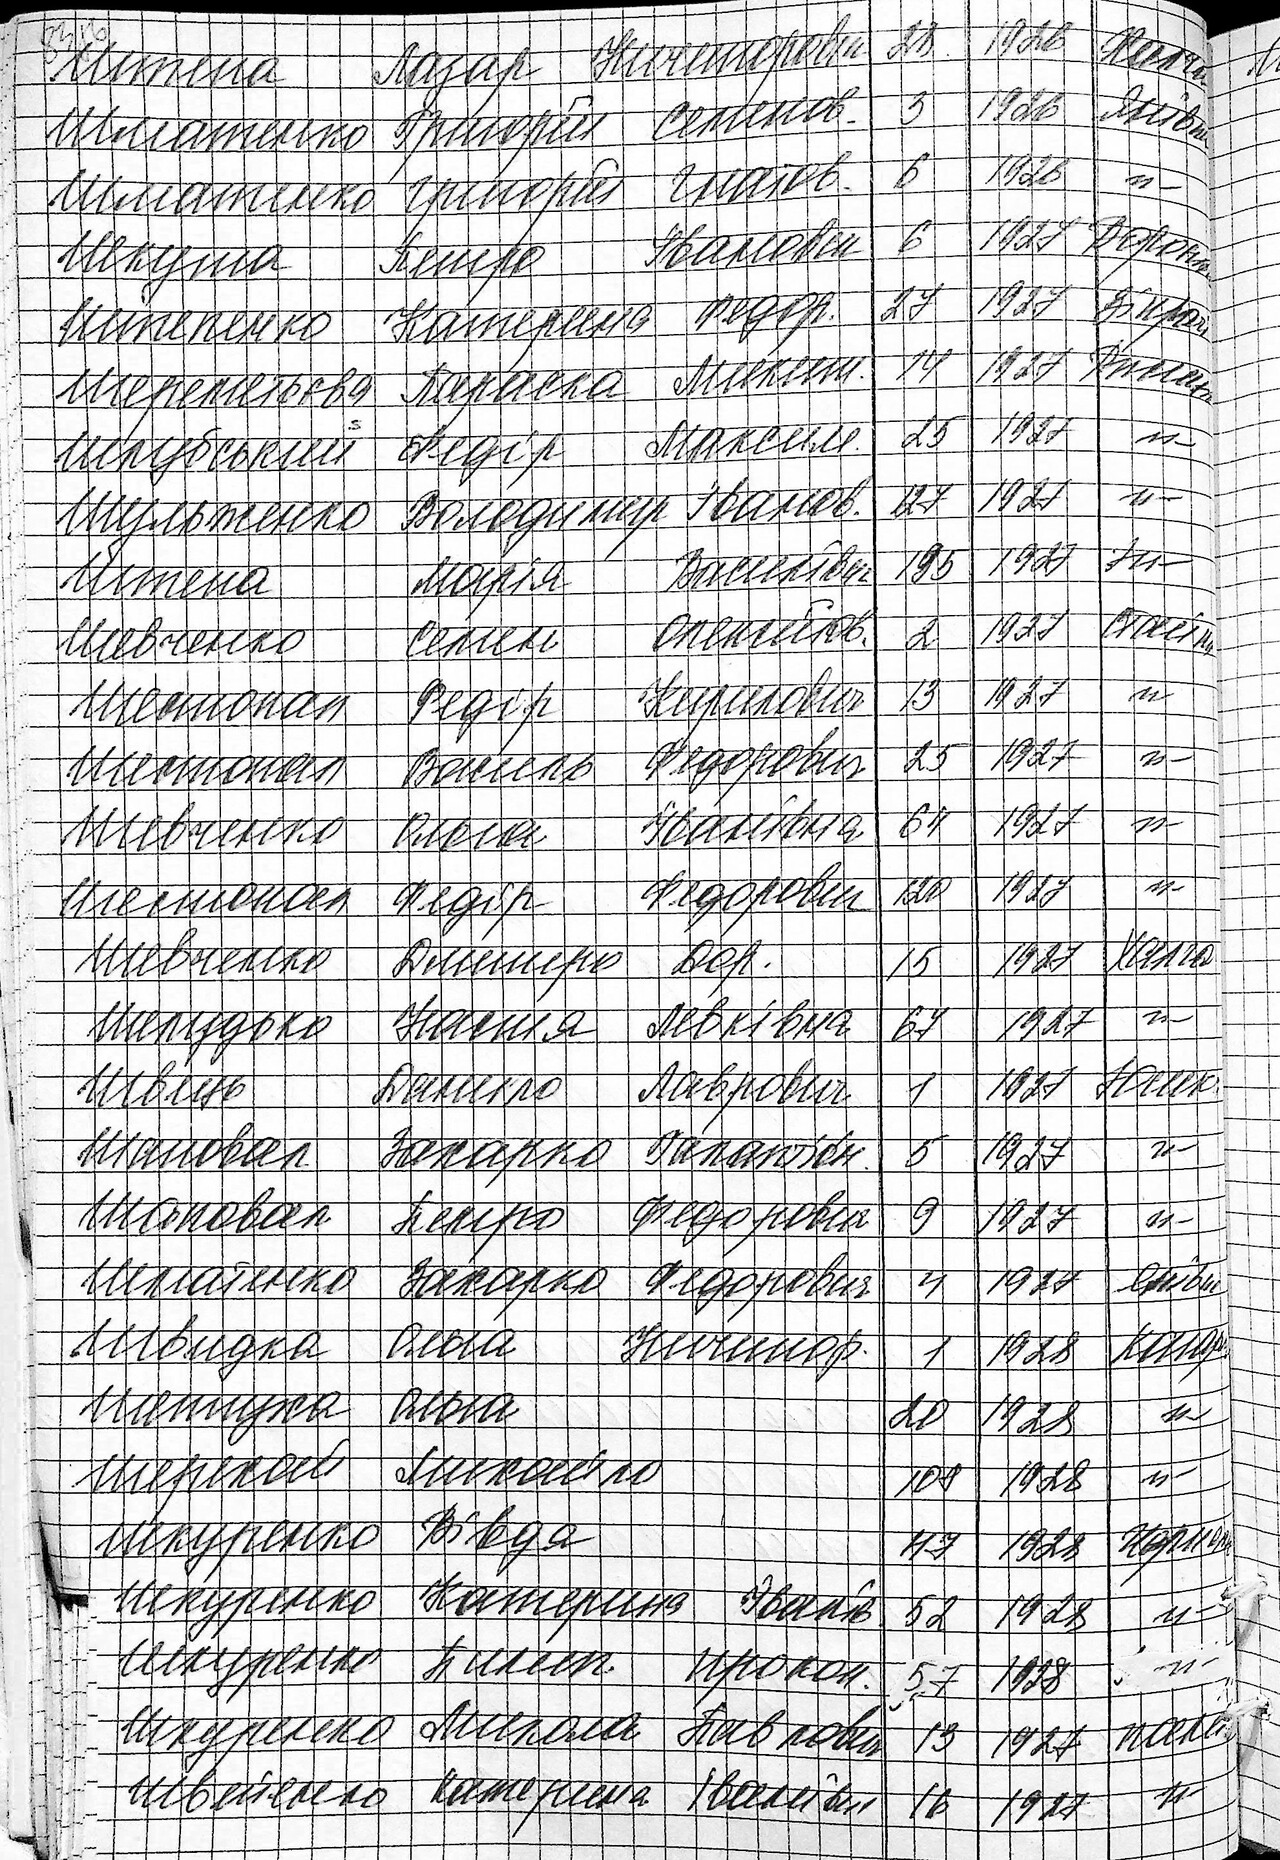 Штепа Лазар Ничипорович 28 1926
Шматенко Григорій Семенов. 3 1926
Шматенко Григорій Гнатов. 6 1926 -"-
Шкута Петро Іванович 6 1927
Штепенко Катерина Федор. 27 1927
Шереметьєва Параска Микит. 14 1927
Шкубський Федір Максим. 25 1927 -"-
Шульженко Володимир Іванов. 127 1927 -"-
Штепа Марія Василівн 195 1927 -"-
Шевченко Семен Олексійов. 2 1927
Шестопал Федір Кирилович 13 1927 -"-
Шестопал Василь Федорович 25 1927 -"-
Шевченко Ольга Іванівна 64 1927 -"-
Шестопал Федір Федорович 120 1927 -"-
Шевченко Дмитро Дор. 15 1927
Шелудько Настя Левківна 67 1927 -"-
Швець Данило Лаврович 1 1927
Шаповал Захарко 5 1927 -"-
Шаповал Петро Федорович 9 1927 -"-
Шматенко Захарко Федорович 4 1927
Швидка Ольга Ничипор. 1 1928
Шептуха Ольга 20 1928 -"-
Шерхай Михайло 108 1928 -"-
Шкуренко Вівдя 47 1928
Шкуренко Катерина Іванів. 52 1928 -"-
Шкуренко Пилип. Прокоп. 57 1928 -"-
Шкуренко Микола Павлович 13 1927
Швейенко Катерина Іванівн 16 1927 -"-